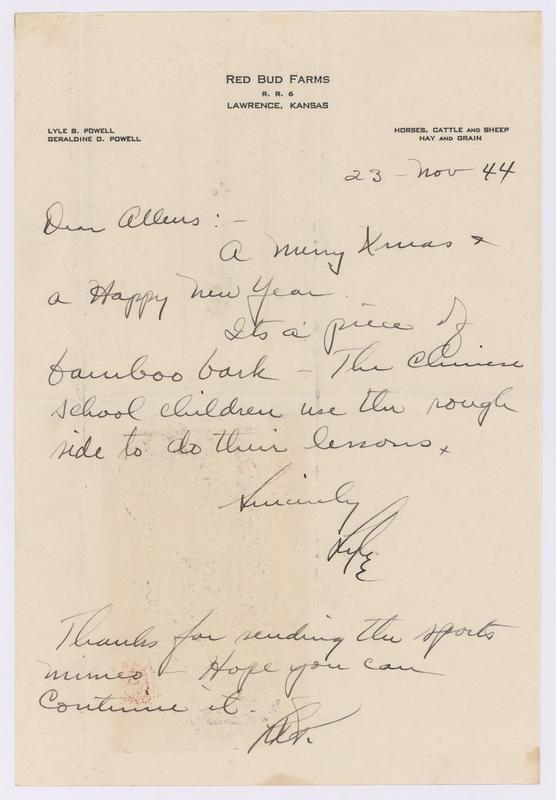 RED BUD FARMS
R. R. 6
LAWRENCE, KANSAS
LYLE S. POWELL
GERALDINE D. POWELL
HORSES, CATTLE AND SHEEP
HAY AND GRAIN
23 - Nov 44
Dear Allens : -
A Merry Xmas &
a Happy New Year
Its a piece of
bamboo bark - The Chinese
school children use the rough
side to do their lessons.
Sincerely
Lyle
Thanks for sending the sports
mimeo - Hope you can
Continue it.